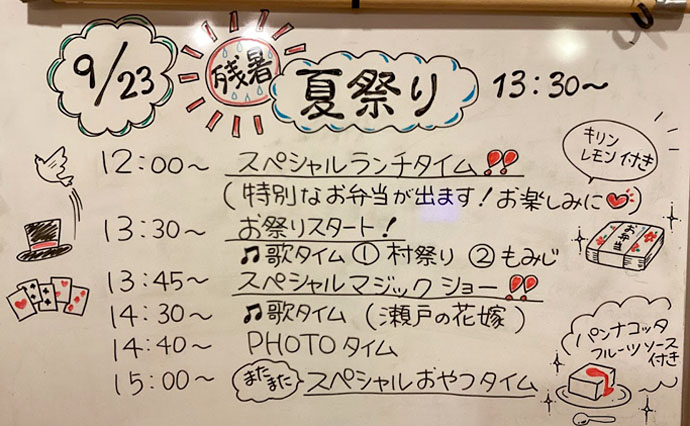 9/23 残暑 夏祭り 13:30〜
12:00〜 スペシャルランチタイム!!
(特別なお弁当が出ます!お楽しみに♥)
キリン
レモン付き
お弁当
13:30〜 お祭りスタート!
♫歌タイム ① 村祭り ② もみじ
13:45〜 スペシャルマジックショー!!
14:30〜 ♫歌タイム (瀬戸の花嫁)
14:40〜 PHOTOタイム
15:00〜 またまた スペシャルおやつタイム
パンナコッタ
フルーツソース
付き